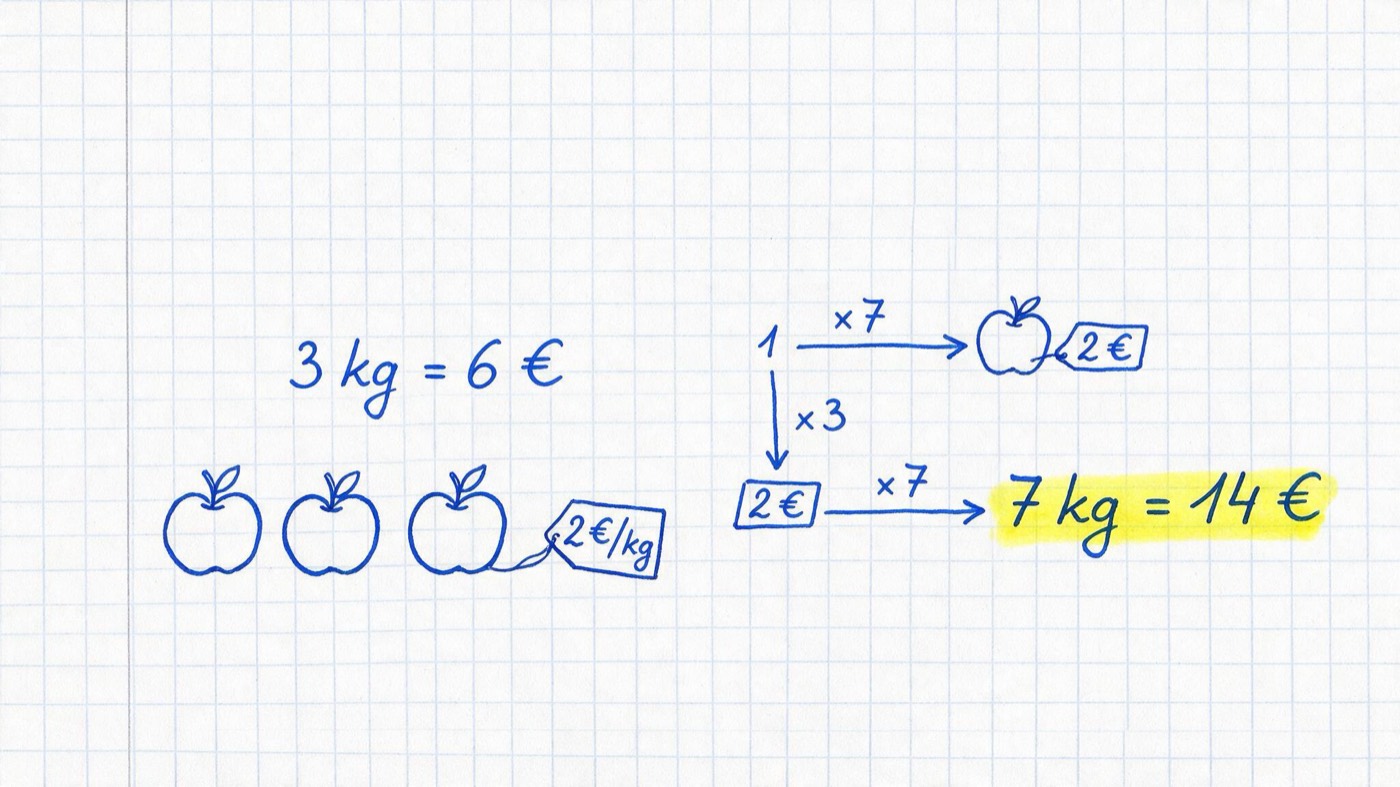 3 kg = 6 €
2€/kg
1
×7
2 €
×3
2 €
×7
7 kg = 14 €